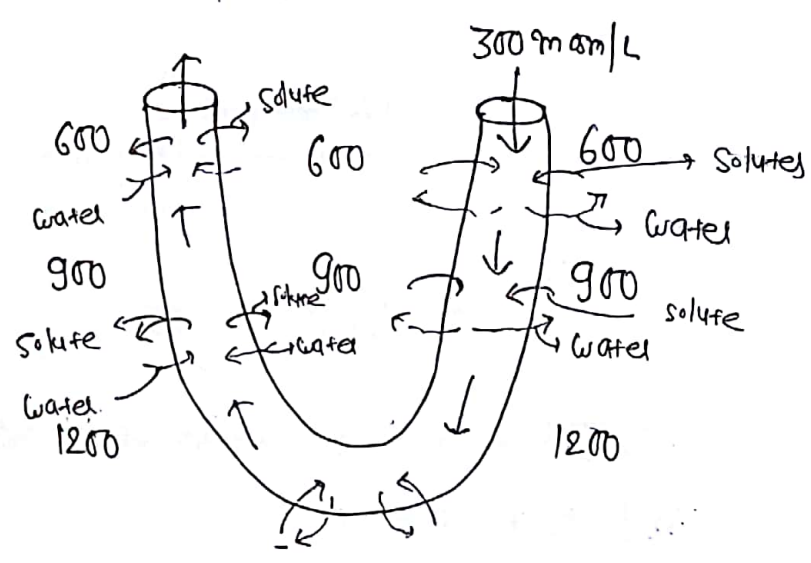 300 mosm/L
solute
600
600
600
Solutes
water
water
900
900
900
solute
solute
Solute
water
water
water
1200
1200